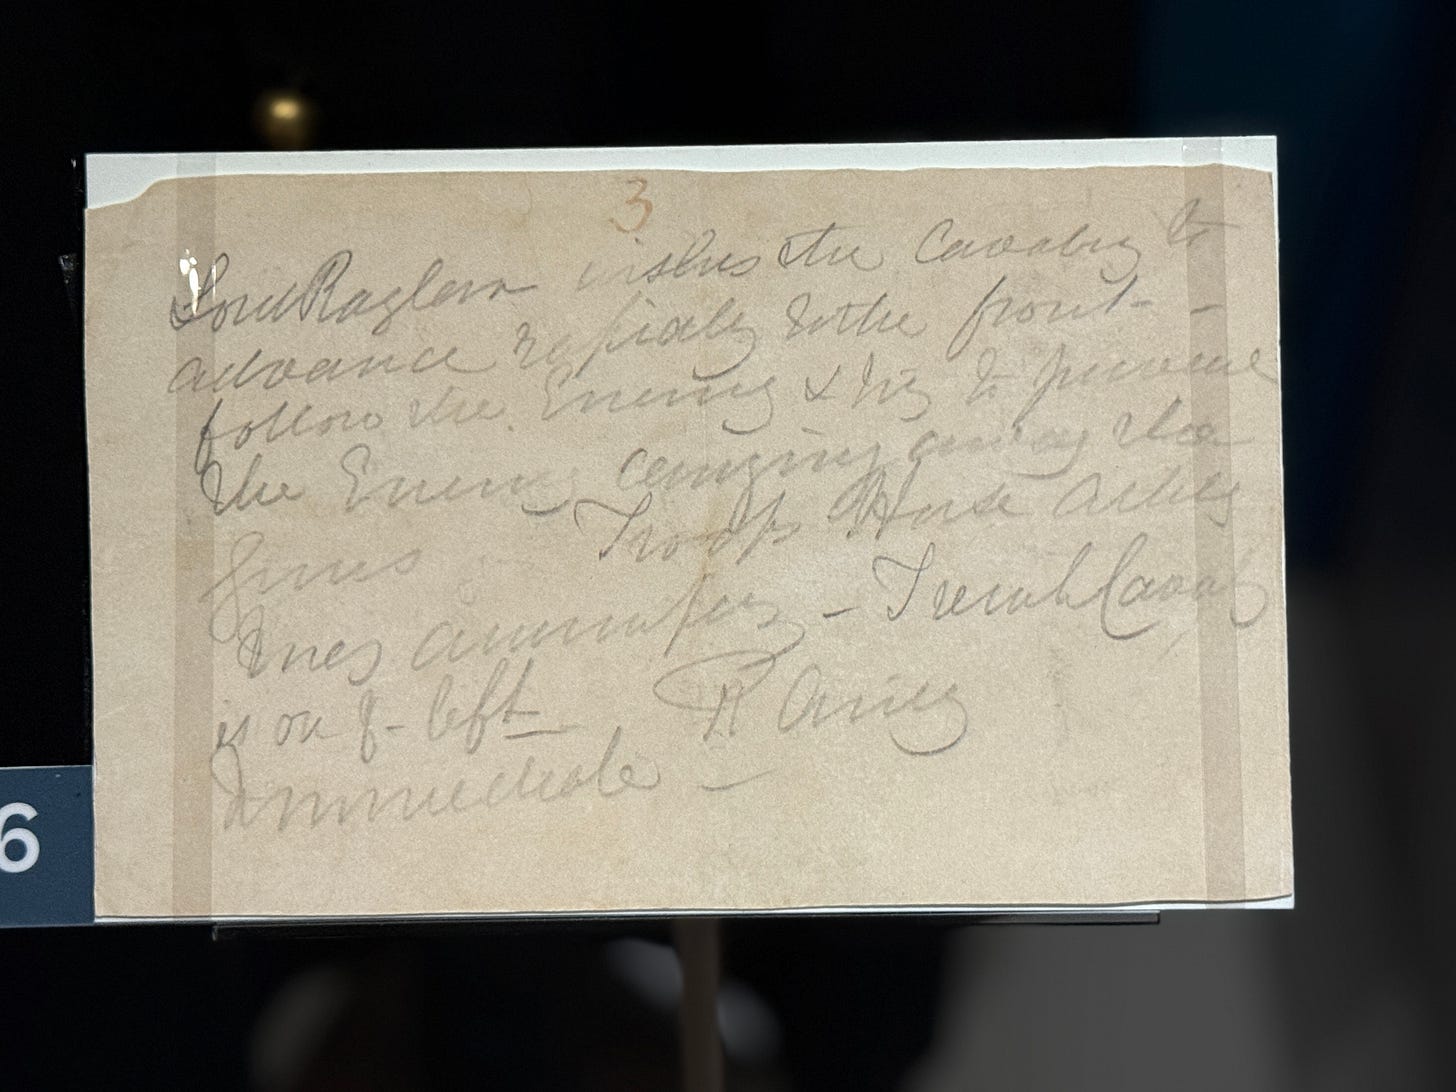 3
Lord Raglan wishes the Cavalry to
advance rapidly to the front -
follow the Enemy & try to prevent
the Enemy carrying away the
guns Troop Horse Artily
may accompany - French Cavaly
is on yr left
R Airey
Immediate -
6